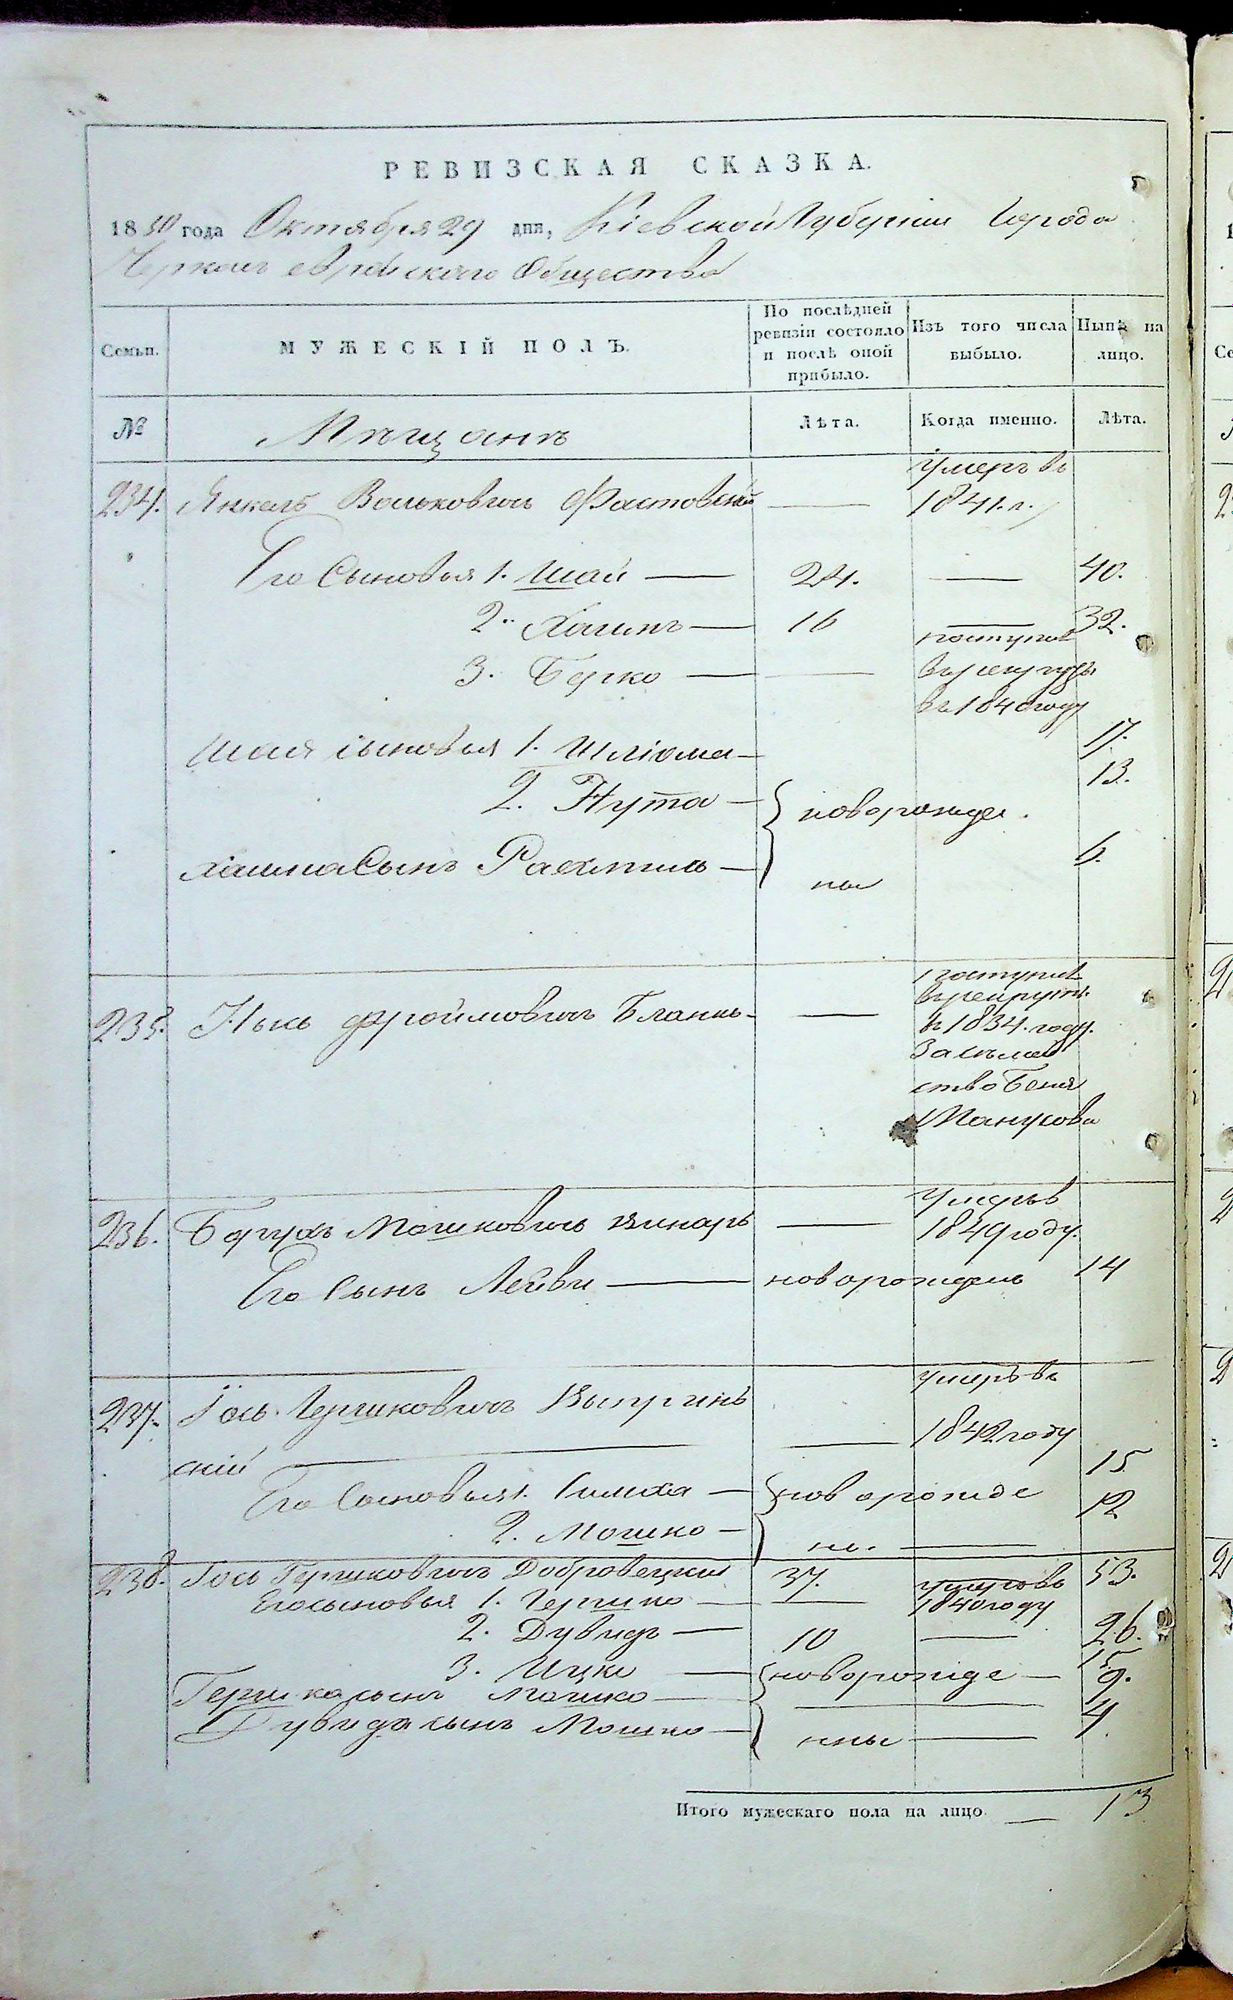 РЕВИЗСКАЯ СКАЗКА.
1850 года Октября 29 дня, Кіевской Губерніи Города
Черкас еврейскаго Общества
Семьи.
МУЖЕСКІЙ ПОЛЪ.
По послѣдней ревизіи состояло и послѣ оной прибыло.
Изъ того числа выбыло.
Нынѣ на лицо.
№
Мѣщанъ
Лѣта.
Когда именно.
Лѣта.
234. Янкель Вольковичъ Фастовскій — умеръ въ 1841 г.
Его Сыновья 1. Шай — 24. — 40.
2. Хаимъ — 16 — 32.
3. Берко — — поступил в рекруты въ 1840 году
Шая сыновья 1. Шліома — 17.
2. Нута — новорожде. 13.
Хаима Сынъ Рахмиль — ны 6.
235. Фроимовичъ Бланкъ — — поступил в рекруты в 1834 году. за семейство
236. Борухъ Мошковичъ Винаръ — умеръ в 1849 году.
Его Сынъ Лейви — новорожденъ 14
237. Іось Гершковичъ
скій — — умеръ въ 1842 году
Его Сыновья 1. Симха — новорожде 15
2. Мошко — ны. — 12
238. Іось Гершковичъ Добровецкій 37. 53.
Его сыновья 1. Гершко — — умеръ въ 1840 году
2. Дувидъ — 10 — 26.
3. Ицко — новорожде — 15
Гершка сынъ Мошко — — 9.
Дувида сынъ Мошко — нны — 4
Итого мужескаго пола на лицо — 13